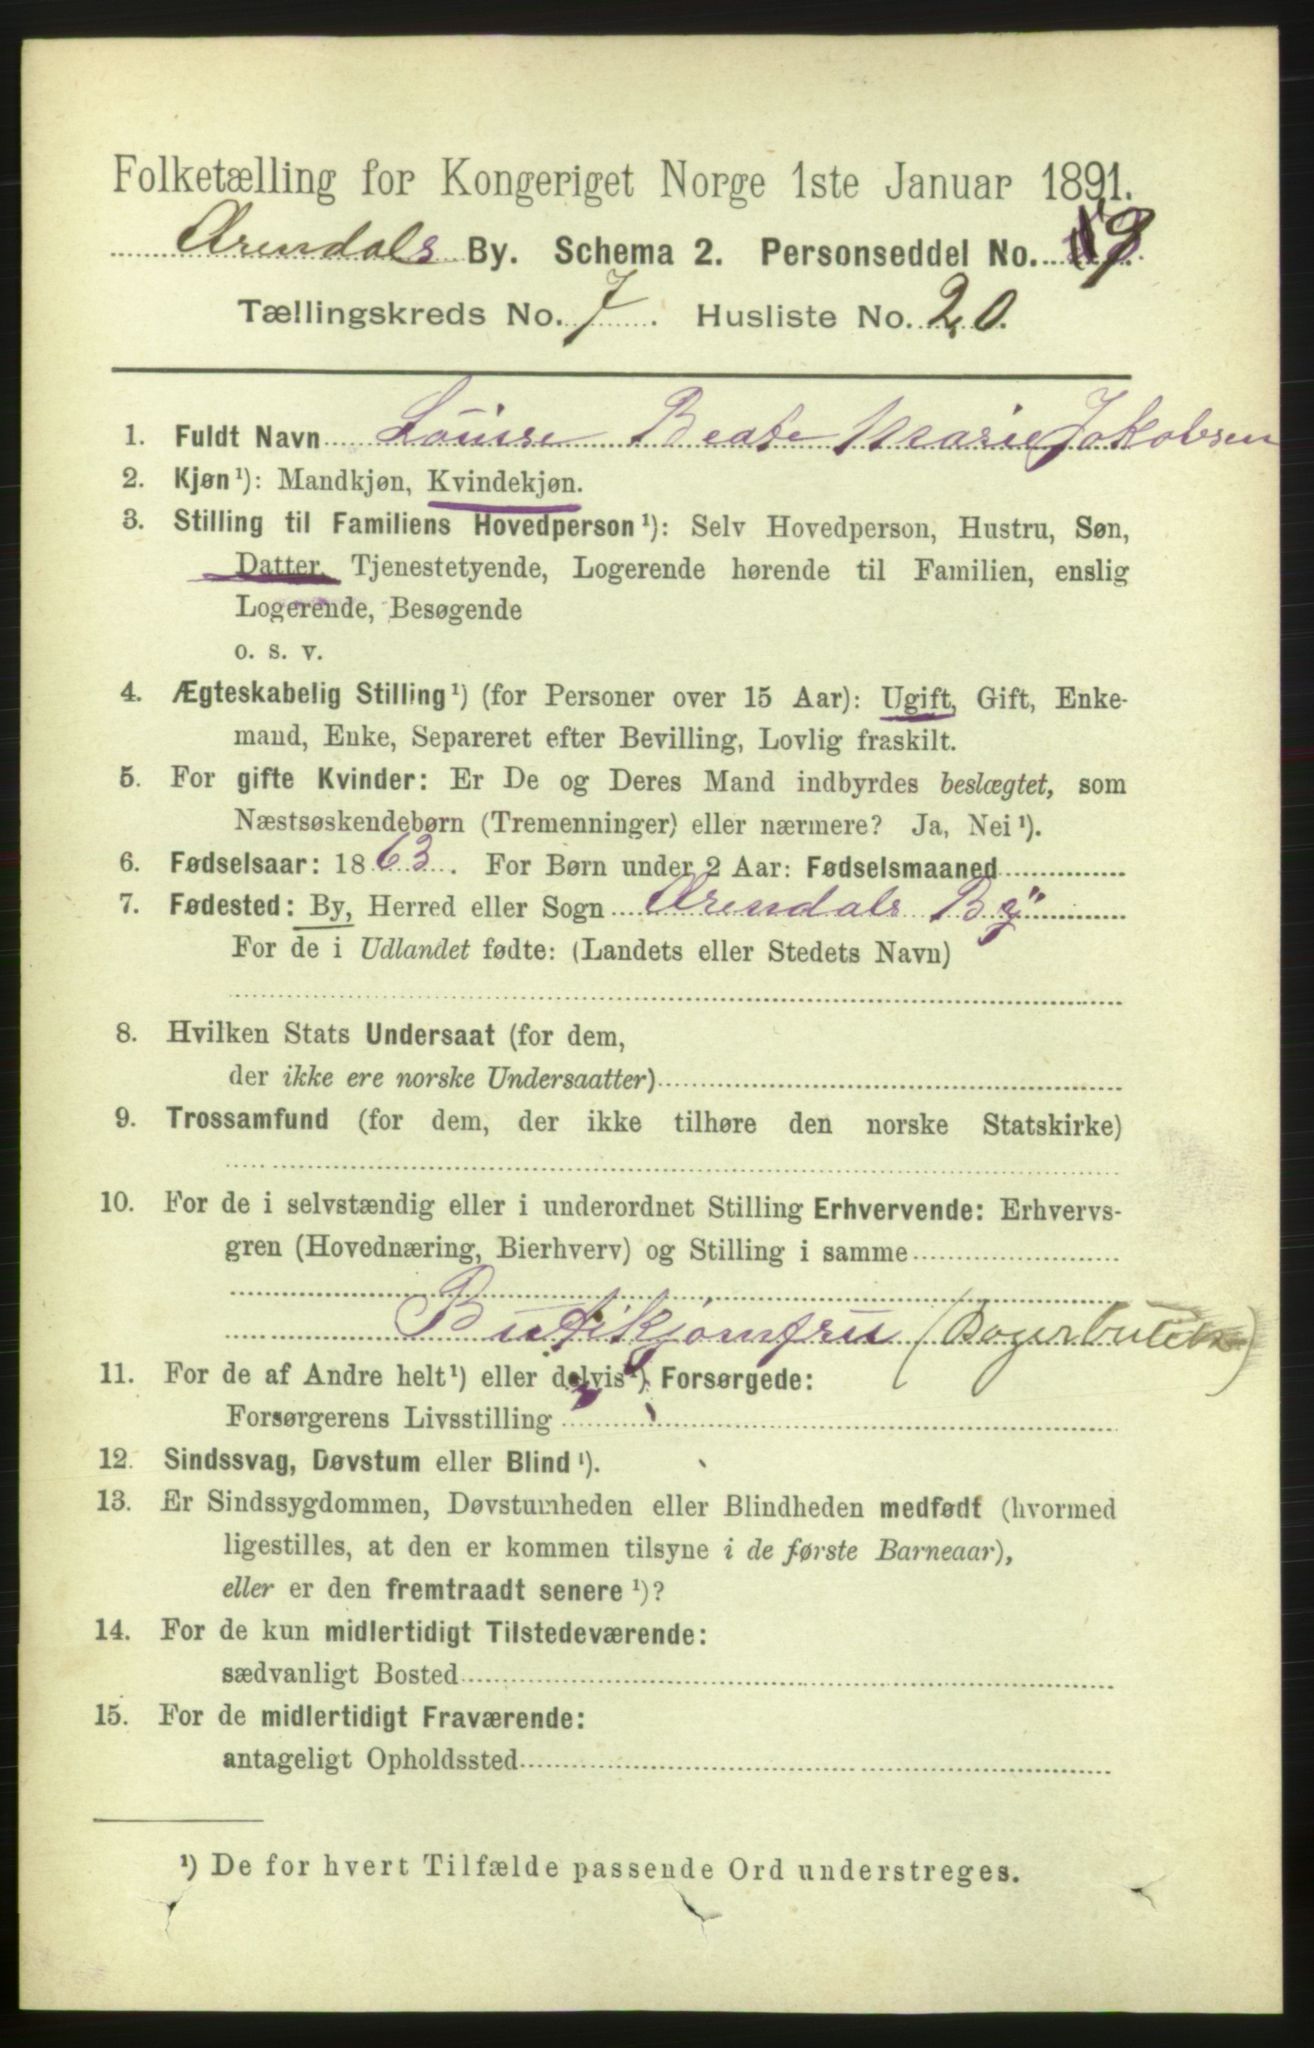 Folketælling for Kongeriget Norge 1ste Januar 1891.
Arendals By. Schema 2. Personseddel No.
Tællingskreds No. 7. Husliste No. 20.
1. Fuldt Navn Louise Beate Marie Jakobsen
2. Kjøn¹): Mandkjøn, Kvindekjøn.
3. Stilling til Familiens Hovedperson¹): Selv Hovedperson, Hustru, Søn,
Datter, Tjenestetyende, Logerende hørende til Familien, enslig
Logerende, Besøgende
o. s. v.
4. Ægteskabelig Stilling¹) (for Personer over 15 Aar): Ugift, Gift, Enke-
mand, Enke, Separeret efter Bevilling, Lovlig fraskilt.
5. For gifte Kvinder: Er De og Deres Mand indbyrdes beslægtet, som
Næstsøskendebørn (Tremenninger) eller nærmere? Ja, Nei¹).
6. Fødselsaar: 1863. For Børn under 2 Aar: Fødselsmaaned
7. Fødested: By, Herred eller Sogn Arendals By
For de i Udlandet fødte: (Landets eller Stedets Navn)
8. Hvilken Stats Undersaat (for dem,
der ikke ere norske Undersaatter)
9. Trossamfund (for dem, der ikke tilhøre den norske Statskirke)
10. For de i selvstændig eller i underordnet Stilling Erhvervende: Erhvervs-
gren (Hovednæring, Bierhverv) og Stilling i samme
Butikjomfru
11. For de af Andre helt¹) eller delvis¹) Forsørgede:
Forsørgerens Livsstilling
12. Sindssvag, Døvstum eller Blind¹).
13. Er Sindssygdommen, Døvstumheden eller Blindheden medfødt (hvormed
ligestilles, at den er kommen tilsyne i de første Barneaar),
eller er den fremtraadt senere¹)?
14. For de kun midlertidigt Tilstedeværende:
sædvanligt Bosted
15. For de midlertidigt Fraværende:
antageligt Opholdssted
¹) De for hvert Tilfælde passende Ord understreges.